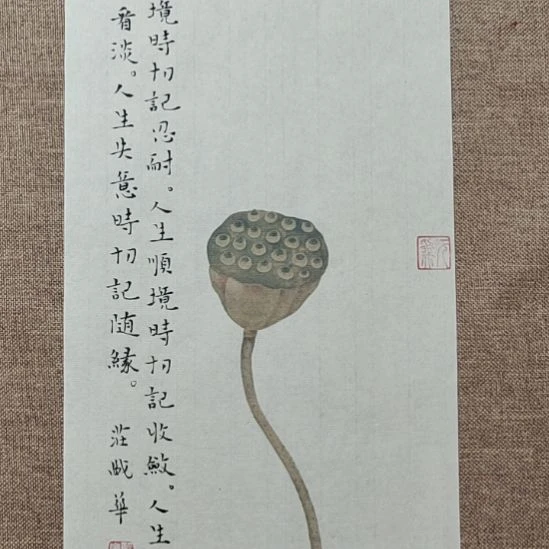 境時切記忍耐。人生順境時切記收斂。人生
看淡。人生失意時切記随緣。
莊昳華